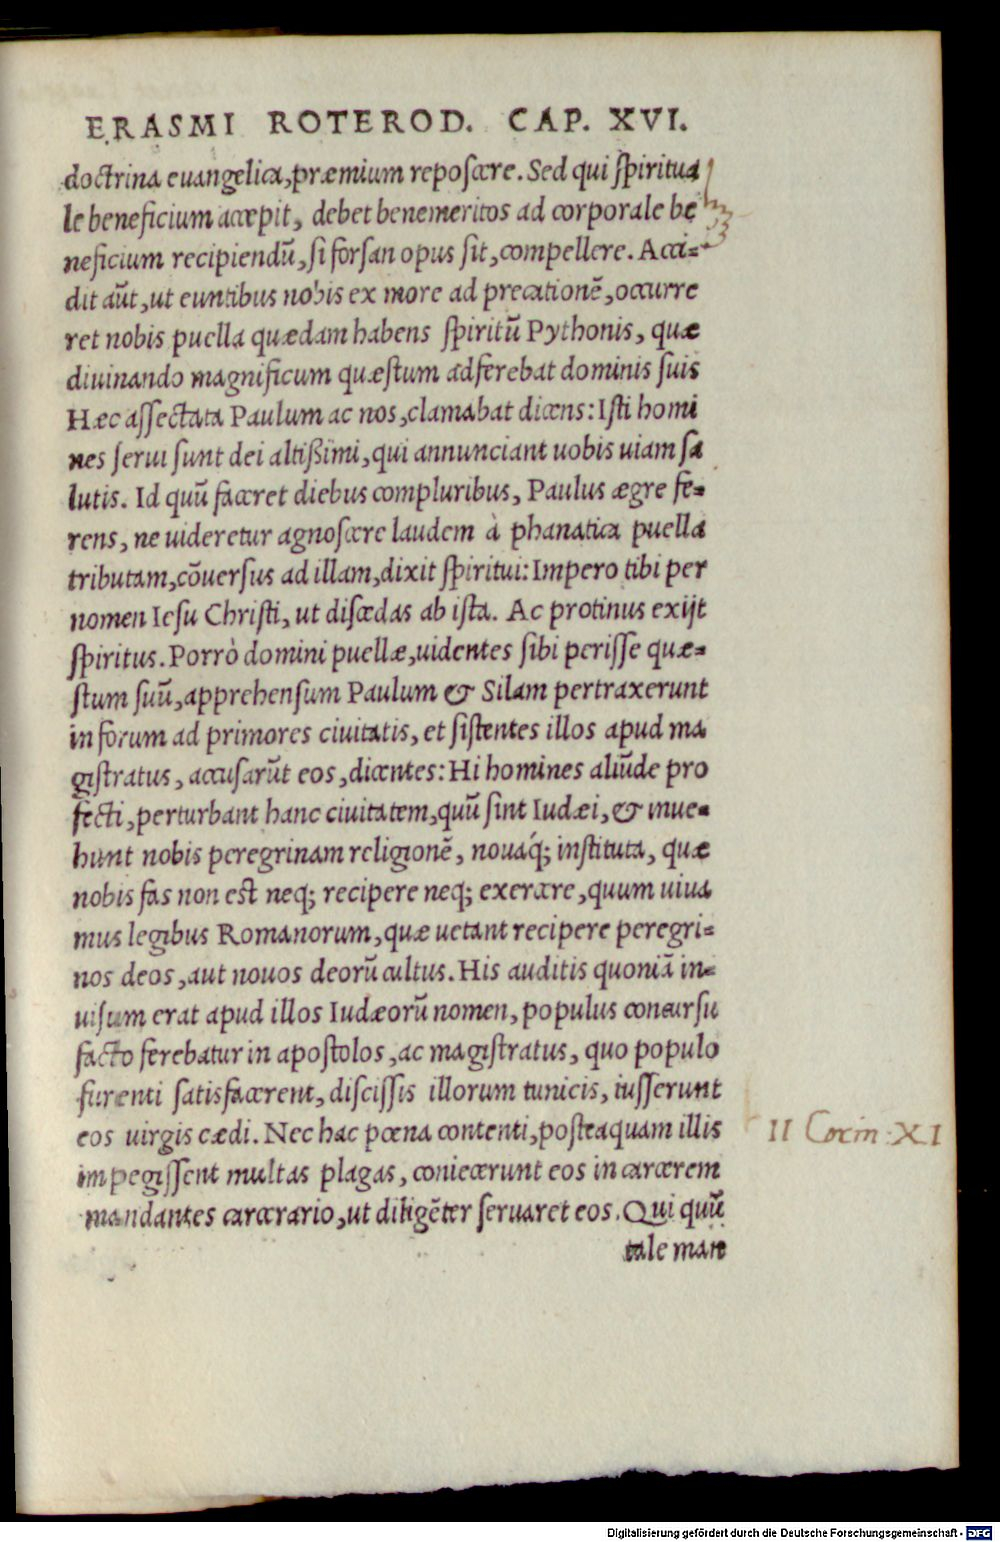 ERASMI ROTEROD. CAP. XVI.
doctrina euangelica, præmium reposcere. Sed qui spiritua
le beneficium accepit, debet benemeritos ad corporale be
neficium recipiendũ, si forsan opus sit, compellere. Acci=
dit aũt, ut euntibus nobis ex more ad precationẽ, occurre
ret nobis puella quædam habens spiritũ Pythonis, quæ
diuinando magnificum quæstum adferebat dominis suis
Hæc assectata Paulum ac nos, clamabat dicens: Isti homi
nes serui sunt dei altißimi, qui annunciant uobis uiam sa
lutis. Id quũ faceret diebus compluribus, Paulus ægre fe=
rens, ne uideretur agnoscere laudem à phanatica puella
tributam, cõuersus ad illam, dixit spiritui: Impero tibi per
nomen Iesu Christi, ut discedas ab ista. Ac protinus exijt
spiritus. Porrò domini puellæ, uidentes sibi perisse quæ=
stum suũ, apprehensum Paulum & Silam pertraxerunt
in forum ad primores ciuitatis, et sistentes illos apud ma
gistratus, accusarũt eos, dicentes: Hi homines aliũde pro
fecti, perturbant hanc ciuitatem, quũ sint Iudæi, & inue=
hunt nobis peregrinam religionẽ, nouáq; instituta, quæ
nobis fas non est neq; recipere neq; exercere, quum uiua
mus legibus Romanorum, quæ uetant recipere peregri=
nos deos, aut nouos deorũ cultus. His auditis quoniã in=
uisum erat apud illos Iudæorũ nomen, populus concursu
facto ferebatur in apostolos, ac magistratus, quo populo
furenti satisfacerent, discissis illorum tunicis, iusserunt
eos uirgis cædi. Nec hac pœna contenti, posteaquam illis
II Corin. XI
impegissent multas plagas, coniecerunt eos in carcerem
mandantes carcerario, ut diligẽter seruaret eos. Qui quũ
tale man
Digitalisierung gefördert durch die Deutsche Forschungsgemeinschaft - DFG